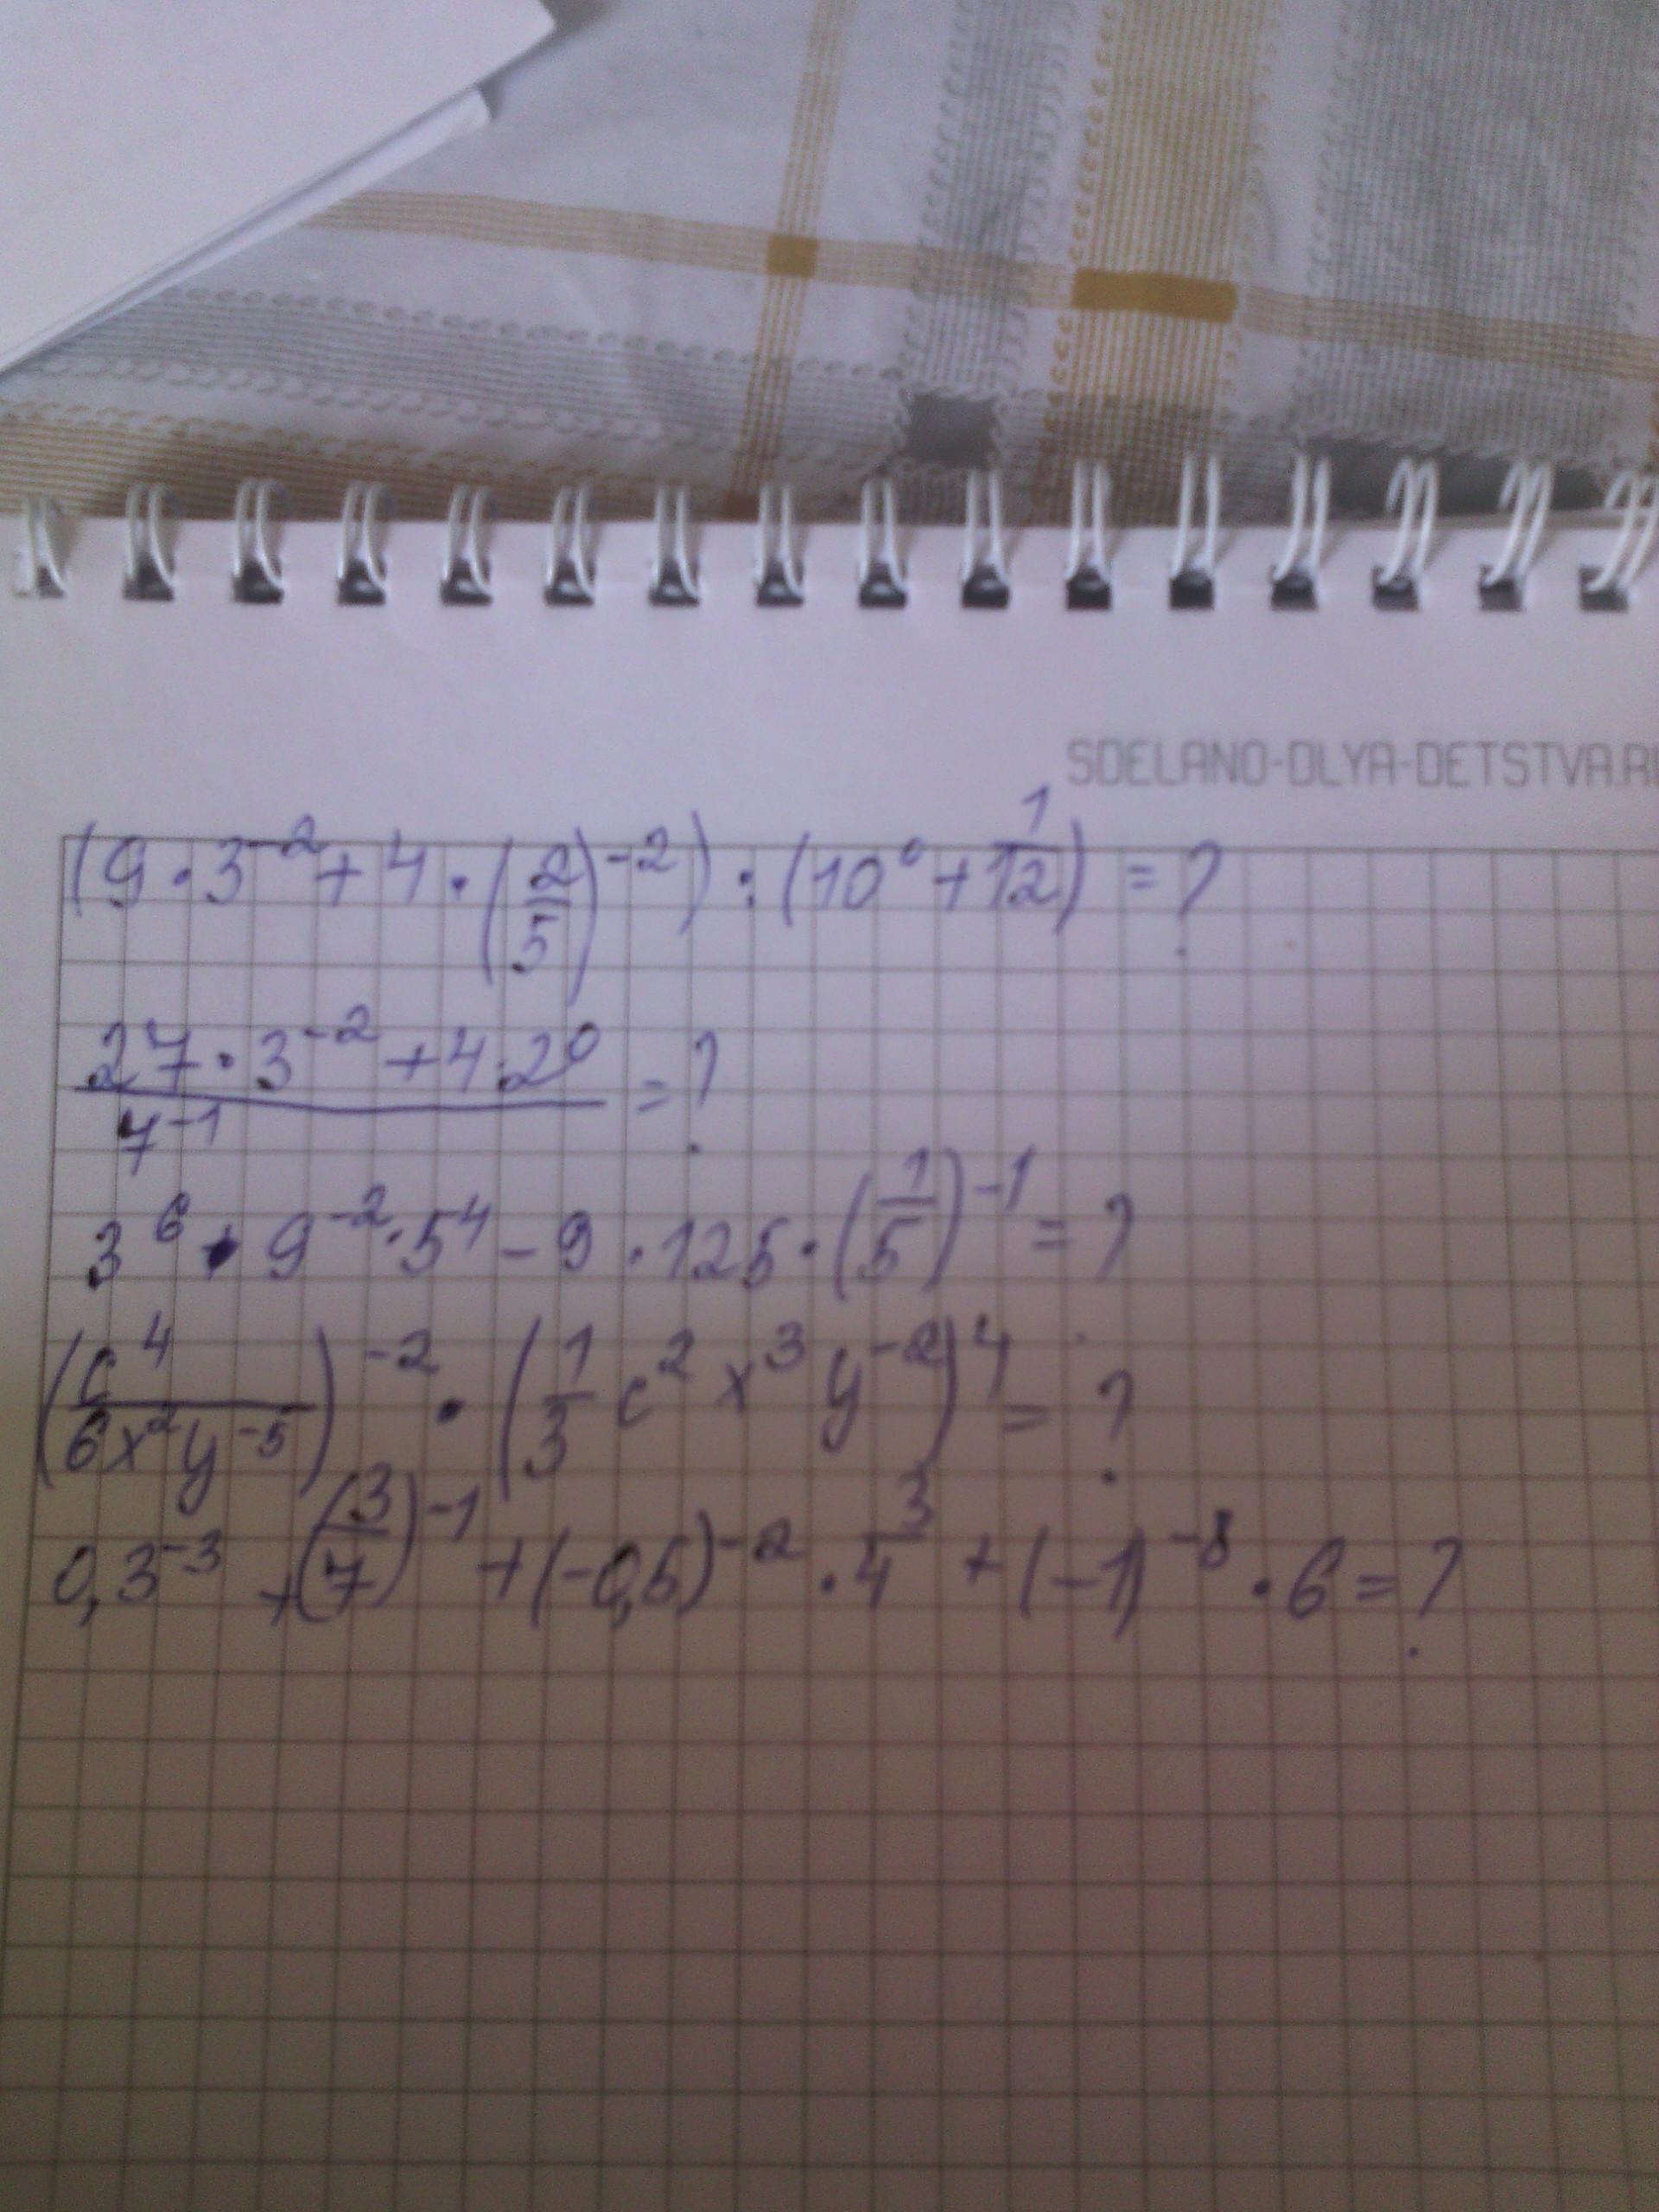 SDELANO-DLYA-DETSTVA.RU
(9·3⁻²+4·(2/5)⁻²):(10⁰+1/12)=?
(27·3⁻²+4·2⁰)/7⁻¹=?
3⁶·9⁻²·5⁴-9·125·(1/5)⁻¹=?
(c⁴/(6x²y⁻⁵))⁻²·(1/3 c²x³y⁻²)⁴=?
0,3⁻³+(3/7)⁻¹+(-0,5)⁻²·4³+(-1)⁻⁸·6=?